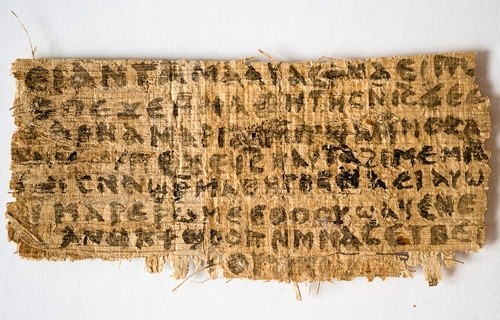 ⲉⲓ ⲁⲛ ⲧⲁⲙⲁⲁⲩ ⲁⲥϯ ⲛⲁⲉⲓ ⲡ
ⲥ ⲡⲉϫⲉ ⲙⲙⲁⲑⲏⲧⲏⲥ ⲛⲓⲥ ϫⲉ ⲥ
ⲁⲣⲛⲁ ⲙⲁⲣⲓⲁⲙ ⲙⲡϣⲁ ⲙⲙⲟⲥ ⲁ
ⲡⲉϫⲉ ⲓⲥ ⲛⲁⲩ ⲧⲁϩⲓⲙⲉ ⲙⲛ
ⲥⲛⲁϣⲣⲙⲁⲑⲏⲧⲏⲥ ⲛⲁⲉⲓ ⲁⲩⲱ
ⲓ ⲙⲁⲣⲉⲣⲱⲙⲉ ⲉⲑⲟⲟⲩ ϣⲁϥⲉⲛⲉ
ⲁⲛⲟⲕ ϯϣⲟⲟⲡ ⲛⲙⲙⲁⲥ ⲉⲧⲃⲉ